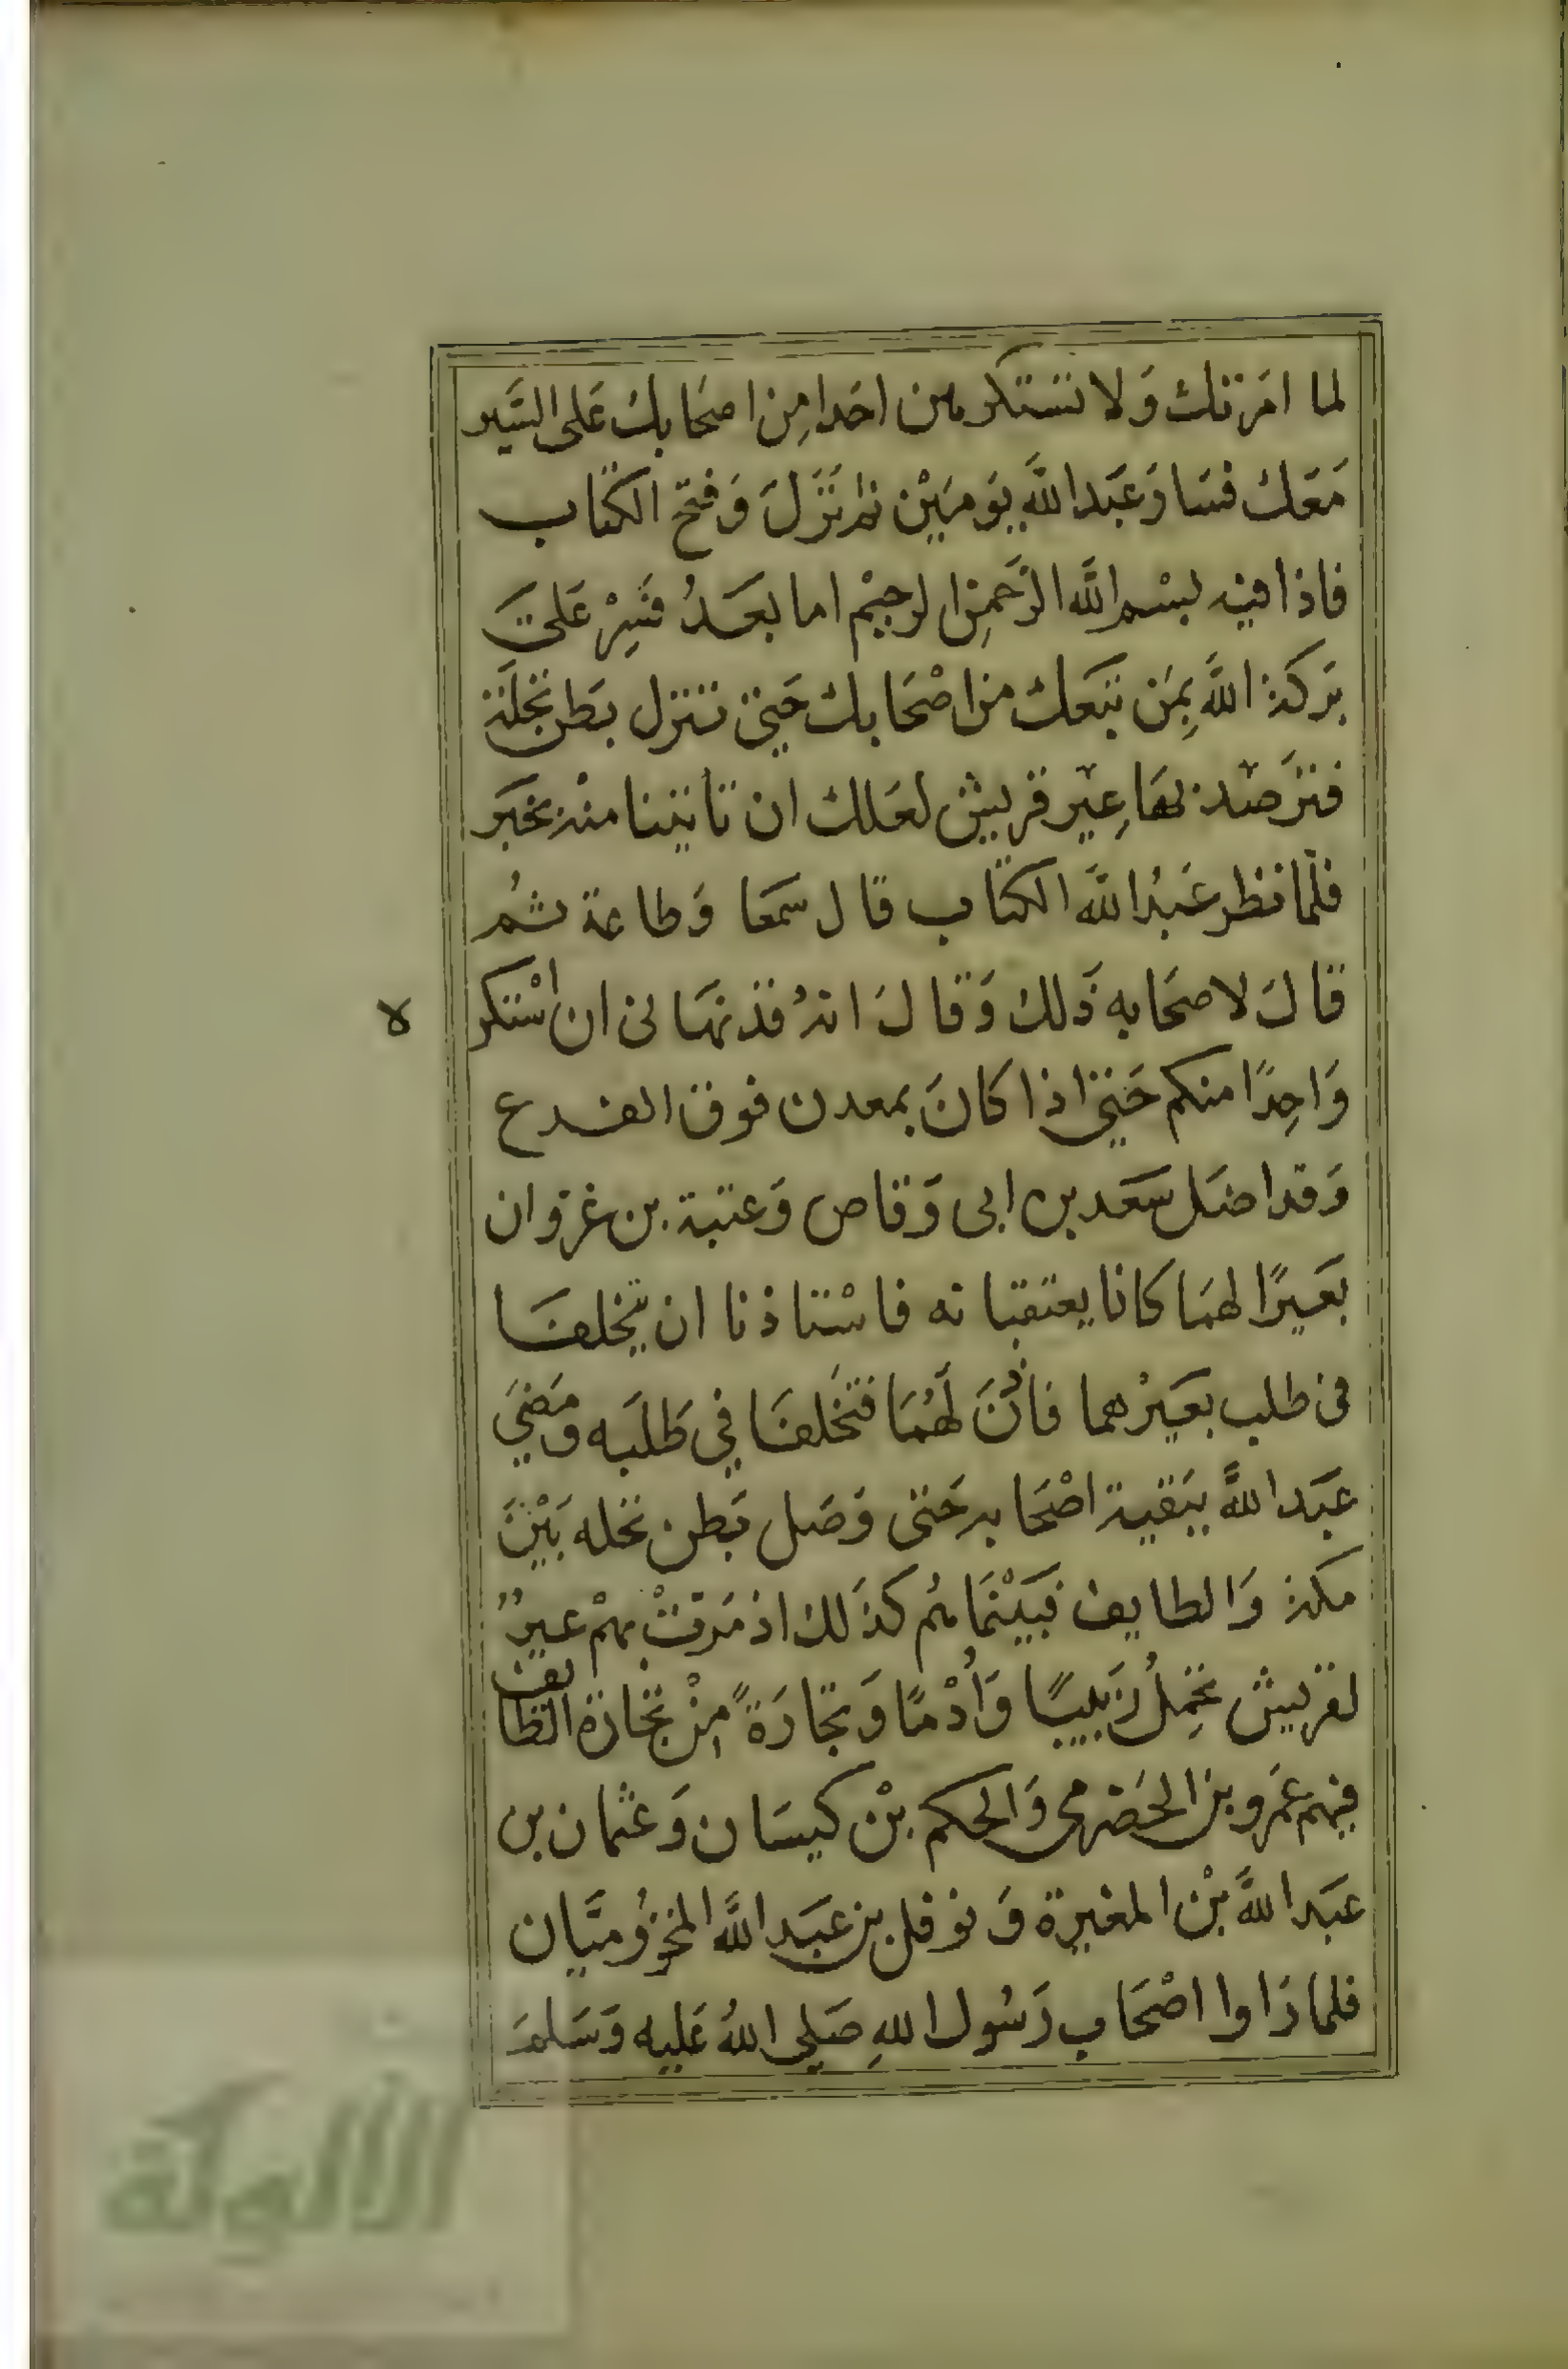 لما امَرتك وَلا تستكرهن احَدا مِن اصحَابك عَلى السَّير
مَعَك فسَارَ عَبَد اللَّه يَومَيْن ثم نَزَلَ وَفتح الكتاب
فاذا فيه بسْم اللَّه الرَّحَمِن الرحيْم اما بعَدُ فَسِرْ عَلىَ
بَركة اللَّه بِمَن تبَعك من اصْحَابك حَتىّ تنزل بَطن نخلَة
فترَصّد بهَا عِيْر قريش لعَلك ان تاتينا منه بخبَر
فلمّا نظر عَبْدُ اللَّه الكتاب قال سمَعا وَطاعة ثمُ
قالَ لاصحَابه ذَلك وَقالَ انهُ قد نهَانى ان اسْتكر ه
وَاحِدًا منكم حَتىّ اذا كانَ بمعدن فوق الفدع
وَقد اضَل سَعَد بن ابى وَقاص وَعتبة بن غزوان
بعَيرًا لهمَا كانا يعتقبانه فاسْتاذنا ان يتخلفَا
فى طلب بعَيرْهما فاذنَ لَهُمَا فتخَلفَا في طَلبَه وَمَضىَ
عَبَد اللَّه ببَقية اصْحَابه حَتى وَصَل بَطن نخله بَيْنَ
مكة وَالطايف فبَيْنمَا هُم كذَلك اذ مَرتْ بهمْ عيرٌ
لقريش تحَمِلُ زَبيبًا وَاُدْمًا وَتجَارَةً مِنْ تجارَة الطايف
فيهم عَمَرو بن الحَضرمى وَالحكم بنْ كيسَان وَعثمان بن
عبَد اللَّه بْن المغيرة وَنوفل بن عبَد اللَّه المخزُوميَّان
فلما رَاوا اصْحَاب رَسُول اللهِ صَلى اللهُ عَليه وَسَلمَ
الألوكة